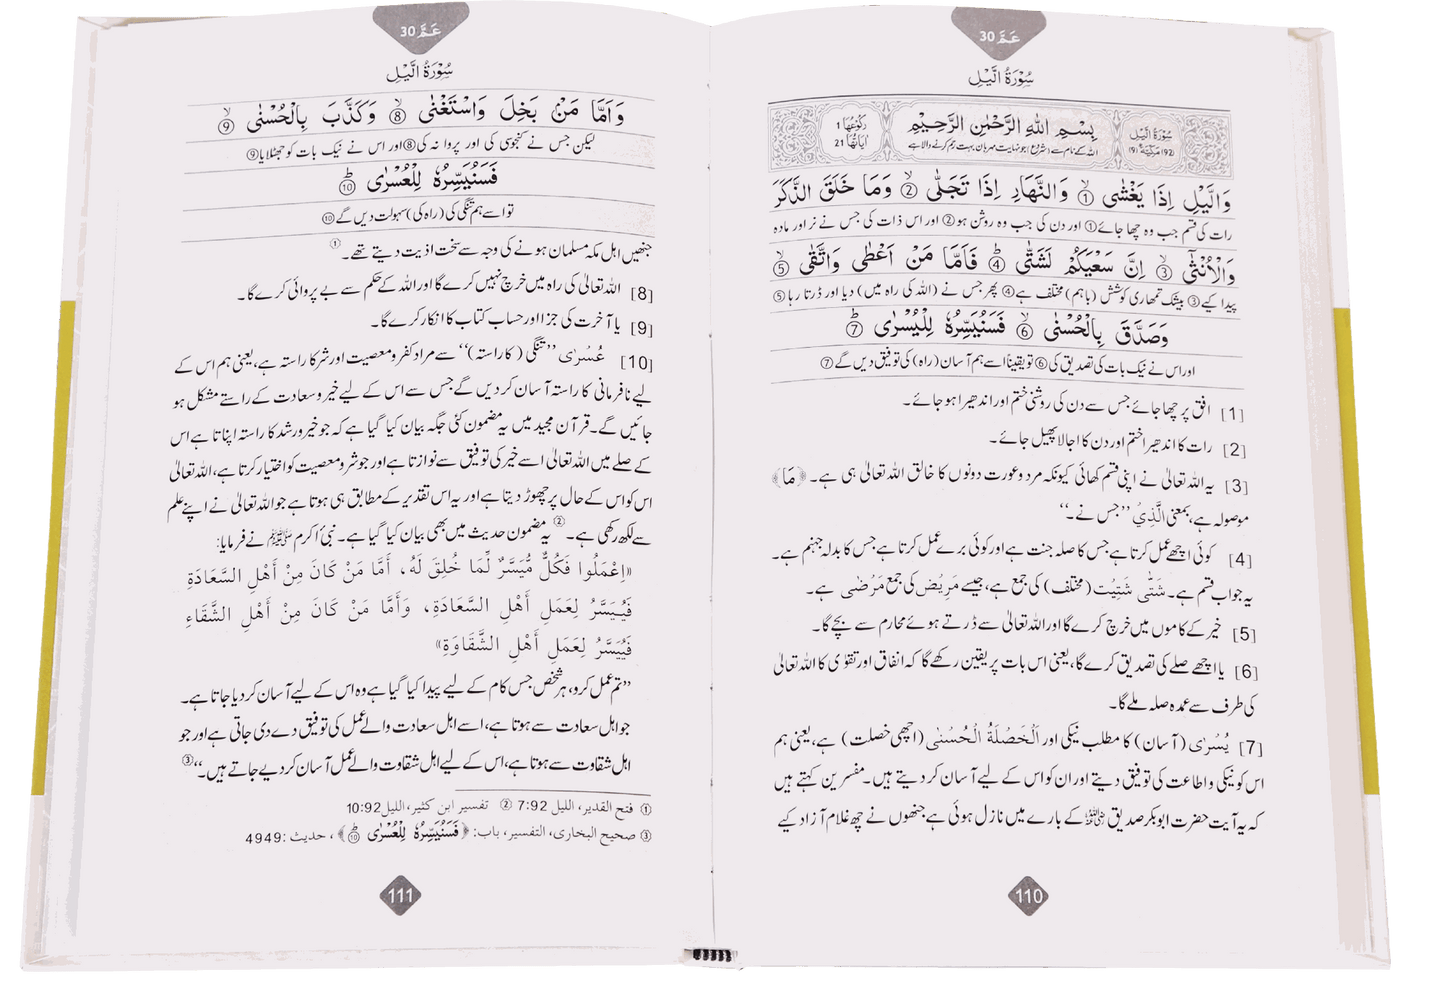 عَمَّ 30
سُوْرَةُ الَّيْل
سُوْرَةُ الَّيْل
(92) مَكِّيَّةٌ (9)
بِسْمِ اللهِ الرَّحْمٰنِ الرَّحِيْمِ
اللہ کے نام سے (شروع) جو نہایت مہربان بہت رحم کرنے والا ہے
رُكُوْعُهَا 1
اٰيَاتُهَا 21
وَالَّيْلِ اِذَا يَغْشٰى ① وَالنَّهَارِ اِذَا تَجَلّٰى ② وَمَا خَلَقَ الذَّكَرَ
رات کی قسم جب وہ چھا جائے① اور دن کی جب وہ روشن ہو② اور اس ذات کی جس نے نر اور مادہ
وَالْاُنْثٰٓى ③ اِنَّ سَعْيَكُمْ لَشَتّٰى ④ فَاَمَّا مَنْ اَعْطٰى وَاتَّقٰى ⑤
پیدا کیے③ بیشک تمھاری کوشش (باہم) مختلف ہے④ پھر جس نے (اللہ کی راہ میں) دیا اور ڈرتا رہا⑤
وَصَدَّقَ بِالْحُسْنٰى ⑥ فَسَنُيَسِّرُهٗ لِلْيُسْرٰى ⑦
اور اس نے نیک بات کی تصدیق کی⑥ تو یقیناً اسے ہم آسان (راہ) کی توفیق دیں گے⑦
[1] افق پر چھا جائے جس سے دن کی روشنی ختم اور اندھیرا ہو جائے۔
[2] رات کا اندھیرا ختم اور دن کا اجالا پھیل جائے۔
[3] یہ اللہ تعالیٰ نے اپنی قسم کھائی کیونکہ مرد و عورت دونوں کا خالق اللہ تعالیٰ ہی ہے۔ ﴿مَا﴾
موصولہ ہے، بمعنی الَّذِيْ ’’جس نے۔‘‘
[4] کوئی اچھے عمل کرتا ہے جس کا صلہ جنت ہے اور کوئی برے عمل کرتا ہے جس کا بدلہ جہنم ہے۔
یہ جواب قسم ہے۔ شَتّٰى شَتِيْت (مختلف) کی جمع ہے، جیسے مَرِيْض کی جمع مَرْضٰى ہے۔
[5] خیر کے کاموں میں خرچ کرے گا اور اللہ تعالیٰ سے ڈرتے ہوئے محارم سے بچے گا۔
[6] یا اچھے صلے کی تصدیق کرے گا، یعنی اس بات پر یقین رکھے گا کہ انفاق اور تقوٰی کا اللہ تعالیٰ
کی طرف سے عمدہ صلہ ملے گا۔
[7] يُسْرٰى (آسان) کا مطلب نیکی اور اَلْخَصْلَةُ الْحُسْنٰى (اچھی خصلت) ہے، یعنی ہم
اس کو نیکی و اطاعت کی توفیق دیتے اور ان کو اس کے لیے آسان کر دیتے ہیں۔ مفسرین کہتے ہیں
کہ یہ آیت حضرت ابوبکر صدیق رضی اللہ عنہ کے بارے میں نازل ہوئی ہے جنھوں نے چھ غلام آزاد کیے
110
عَمَّ 30
سُوْرَةُ الَّيْل
وَاَمَّا مَنْۢ بَخِلَ وَاسْتَغْنٰى ⑧ وَكَذَّبَ بِالْحُسْنٰى ⑨
لیکن جس نے کنجوسی کی اور پروا نہ کی⑧ اور اس نے نیک بات کو جھٹلایا⑨
فَسَنُيَسِّرُهٗ لِلْعُسْرٰى ⑩
تو اسے ہم تنگی کی (راہ کی) سہولت دیں گے⑩
جنھیں اہل مکہ مسلمان ہونے کی وجہ سے سخت اذیت دیتے تھے۔①
[8] اللہ تعالیٰ کی راہ میں خرچ نہیں کرے گا اور اللہ کے حکم سے بے پروائی کرے گا۔
[9] یا آخرت کی جزا اور حساب کتاب کا انکار کرے گا۔
[10] عُسْرٰى ’’تنگی (کا راستہ)‘‘ سے مراد کفر و معصیت اور شر کا راستہ ہے، یعنی ہم اس کے
لیے نافرمانی کا راستہ آسان کر دیں گے جس سے اس کے لیے خیر و سعادت کے راستے مشکل ہو
جائیں گے۔ قرآن مجید میں یہ مضمون کئی جگہ بیان کیا گیا ہے کہ جو خیر و رشد کا راستہ اپناتا ہے اس
کے صلے میں اللہ تعالیٰ اسے خیر کی توفیق سے نوازتا ہے اور جو شر و معصیت کو اختیار کرتا ہے، اللہ تعالیٰ
اس کو اس کے حال پر چھوڑ دیتا ہے اور یہ اس تقدیر کے مطابق ہی ہوتا ہے جو اللہ تعالیٰ نے اپنے علم
سے لکھ رکھی ہے۔② یہ مضمون حدیث میں بھی بیان کیا گیا ہے۔ نبیٔ اکرم ﷺ نے فرمایا:
«اِعْمَلُوا فَكُلٌّ مُّيَسَّرٌ لِّمَا خُلِقَ لَهُ، أَمَّا مَنْ كَانَ مِنْ أَهْلِ السَّعَادَةِ
فَيُيَسَّرُ لِعَمَلِ أَهْلِ السَّعَادَةِ، وَأَمَّا مَنْ كَانَ مِنْ أَهْلِ الشَّقَاءِ
فَيُيَسَّرُ لِعَمَلِ أَهْلِ الشَّقَاوَةِ»
’’تم عمل کرو، ہر شخص جس کام کے لیے پیدا کیا گیا ہے وہ اس کے لیے آسان کر دیا جاتا ہے۔
جو اہل سعادت سے ہوتا ہے، اسے اہل سعادت والے عمل کی توفیق دے دی جاتی ہے اور جو
اہل شقاوت سے ہوتا ہے، اس کے لیے اہل شقاوت والے عمل آسان کر دیے جاتے ہیں۔‘‘③
① فتح القدير، الليل 7:92 ② تفسير ابن كثير، الليل 10:92
③ صحيح البخاري، التفسير، باب: ﴿فَسَنُيَسِّرُهٗ لِلْعُسْرٰى ⑩﴾، حديث: 4949
111